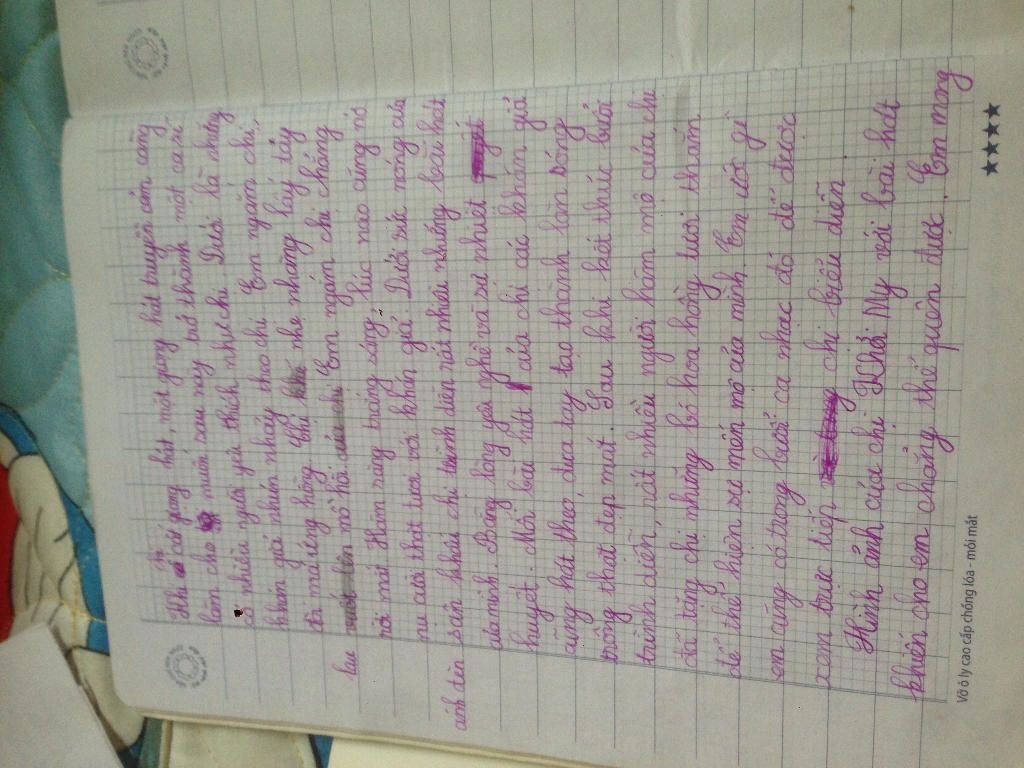 Khi chị cất giọng hát, một giọng hát truyền cảm càng
làm cho muốn sau này trở thành một ca sĩ
có nhiều người yêu thích như chị. Dưới là những
khán giả nhún nhảy theo chị. Em ngắm chị,
đôi má ửng hồng. Chị nhẹ nhàng lấy tay
lau mồ hôi Em ngắm chị chẳng
rời mắt Hàm răng trắng sáng, lúc nào cũng nở
nụ cười thật tươi với khán giả. Dưới sức nóng của
ánh đèn sân khấu chị trình diễn rất nhiều những bài hát
của mình. Bằng lòng yêu nghề và sự nhiệt
huyết. Mỗi bài hát của chị các khán giả
cũng hát theo, đưa tay tạo thành làn sóng
trông thật đẹp mắt. Sau khi kết thúc buổi
trình diễn, rất nhiều người hâm mộ của chị
đã tặng chị những bó hoa hồng tươi thắm
để thể hiện sự mến mộ của mình. Em ước gì
em cũng có trong buổi ca nhạc đó để được
xem trực tiếp chị biểu diễn
Hình ảnh của chị Khởi My với bài hát
khiến cho em chẳng thể quên được. Em mong
Vở ô ly cao cấp chống lóa - mỏi mắt
★★★★